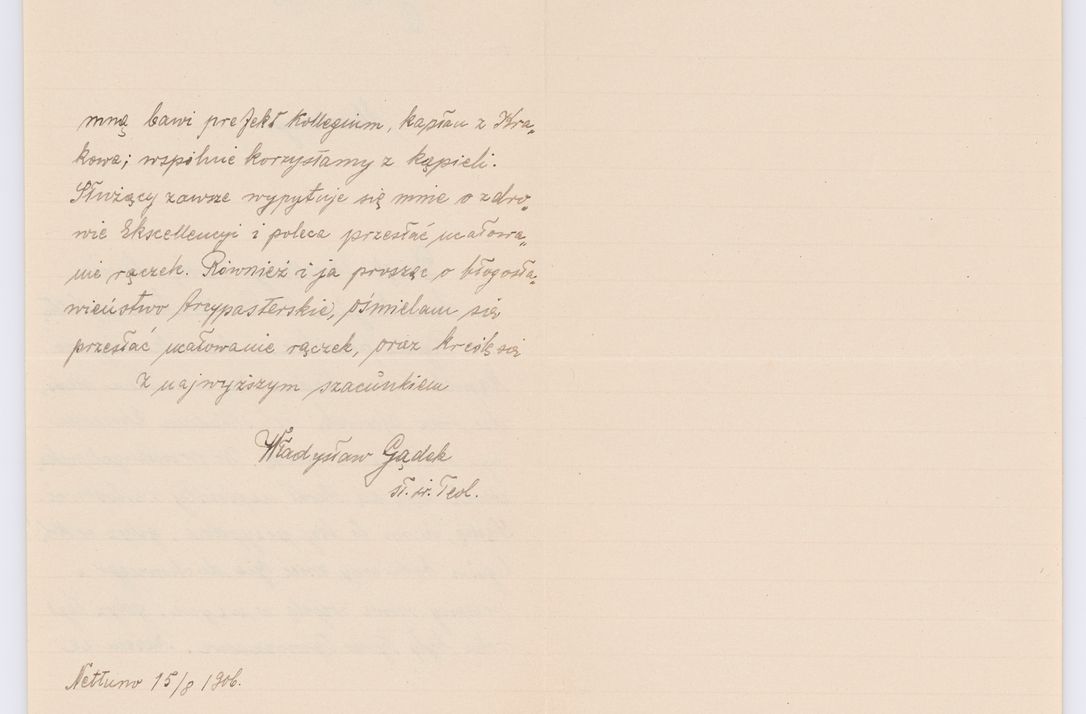 mną bawi prefekt Kollegium, kapłan z Kra„
kowa; wspólnie korzystamy z kąpieli.
Służący zawsze wypytuje się mnie o zdro„
wie Ekscellencyi i poleca przesłać ucałowa„
nie rączek. Również i ja prosząc o błogosła„
wieństwo Arcypasterskie, ośmielam się
przesłać ucałowanie rączek, oraz kreślę się
Z najwyższym szacunkiem
Władysław Gądek
sł. św. Teol.
Nettuno 15/8 1906.